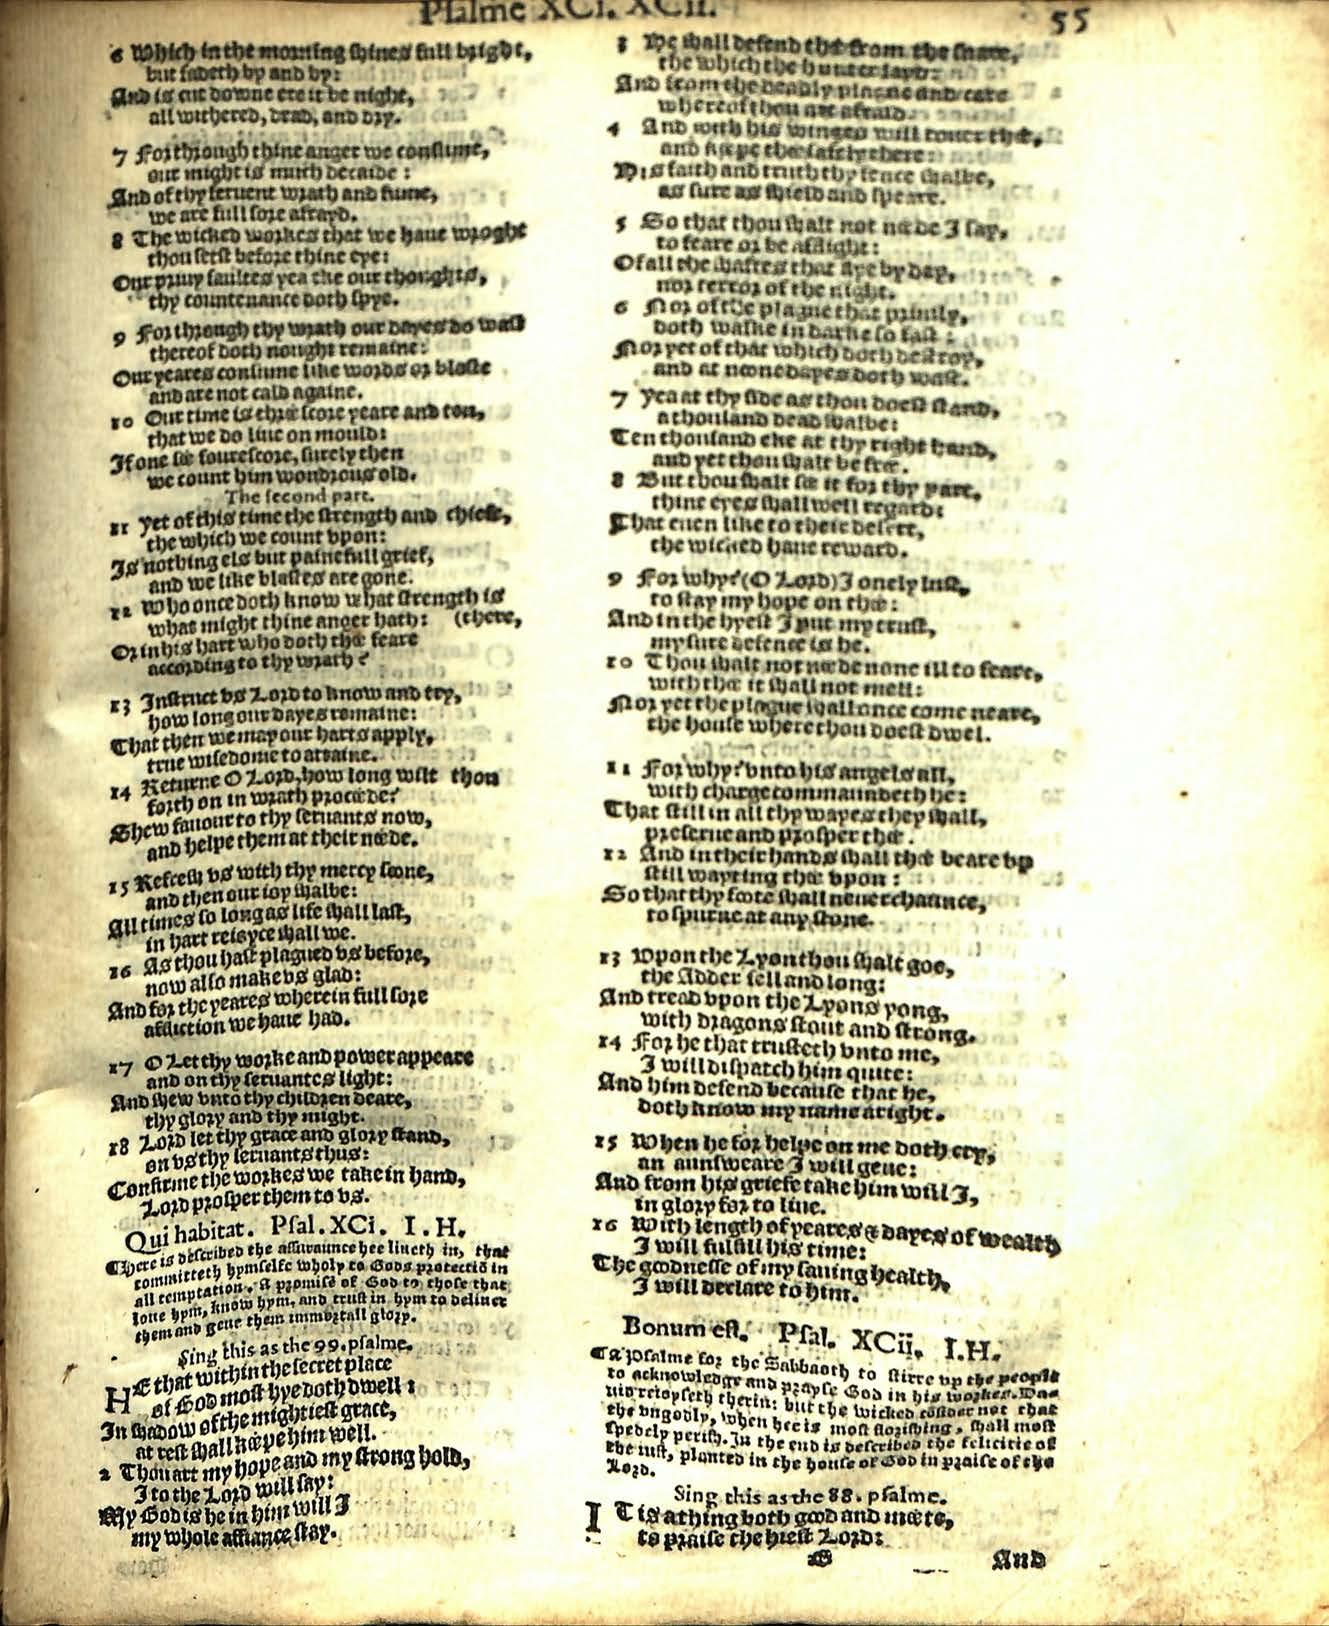 Psalme XCi. XCii.
55
6 Which in the morning shines full bright,
but fadeth by and by:
And is cut downe ere it be night,
all withered, dead, and dry.
7 For through thine anger we consume,
our might is much decaide:
And of thy feruent wrath and fume,
we are full sore afrayd.
8 The wicked workes that we haue wroght
thou setst before thine eye:
Our priuy faultes yea eke our thoughts,
thy countenance doth spye.
9 For through thy wrath our dayes do wast
thereof doth nought remaine:
Our yeares consume like words or blaste
and are not cald againe.
10 Our time is thrée score yeare and ten,
that we do liue on mould:
If one sée fourescore, surely then
we count him wondrous old.
The second part.
11 Yet of this time the strength and chiefe,
the which we count vpon:
Is nothing els but painefull grief,
and we like blastes are gone.
12 Who once doth know what strength is
what might thine anger hath: (there,
Or in his hart who doth thée feare
according to thy wrath?
13 Instruct vs Lord to know and try,
how long our dayes remaine:
That then we may our harts apply,
true wisedome to attaine.
14 Returne O Lord, how long wilt thou
forth on in wrath procéede?
Shew fauour to thy seruants now,
and helpe them at their néede.
15 Refresh vs with thy mercy soone,
and then our ioy shalbe:
All times so long as life shall last,
in hart reioyce shall we.
16 As thou hast plagued vs before,
now also make vs glad:
And for the yeares wherein full sore
affliction we haue had.
17 O Let thy worke and power appeare
and on thy seruantes light:
And shew vnto thy children deare,
thy glory and thy might.
18 Lord let thy grace and glory stand,
on vs thy seruants thus:
Confirme the workes we take in hand,
Lord prosper them to vs.
Qui habitat. Psal. XCi. I. H.
¶Here is described the assuraunce hee liueth in, that
committeth hymselfe wholy to Gods protectiō in
all temptation. A promise of God to those that
loue hym, know hym, and trust in hym to deliuer
them and geue them immortall glory.
Sing this as the 99. psalme.
HE that within the secret place
of God most hye doth dwell:
In shadow of the mightiest grace,
at rest shall kéepe him well.
2 Thou art my hope and my strong hold,
I to the Lord will say:
My God is he in him will I
my whole affiance stay.
3 He shall defend thée from the snare,
the which the hunter layd:
And from the deadly plague and care
whereof thou art afraid.
4 And with his winges will couer thée,
and kéepe thée safely there:
His faith and truth thy fence shalbe,
as sure as shield and speare.
5 So that thou shalt not néede I say,
to feare or be affright:
Of all the shaftes that flye by day,
nor terror of the night.
6 Nor of the plague that priuily,
doth walke in darke so fast:
Nor yet of that which doth destroy,
and at noone dayes doth wast.
7 Yea at thy side as thou doest stand,
a thousand dead shalbe:
Ten thousand eke at thy right hand,
and yet thou shalt be frée.
8 But thou shalt sée it for thy part,
thine eyes shall well regard:
That euen like to their desert,
the wicked haue reward.
9 For why? (O Lord) I onely lust,
to stay my hope on thée:
And in the hyest I put my trust,
my sure defence is he.
10 Thou shalt not néede none ill to feare,
with thée it shall not mell:
Nor yet the plague shall once come neare,
the house where thou doest dwel.
11 For why? vnto his angels all,
with charge commaundeth he:
That still in all thy wayes they shall,
preserue and prosper thée.
12 And in their hands shall thée beare vp
still wayting thée vpon:
So that thy foote shall neuer chaunce,
to spurne at any stone.
13 Vpon the Lyon thou shalt goe,
the Adder fell and long:
And tread vpon the Lyons yong,
with dragons stout and strong.
14 For he that trusteth vnto me,
I will dispatch him quite:
And him defend because that he,
doth know my name aright.
15 When he for helpe on me doth cry,
an aunsweare I will geue:
And from his griefe take him will I,
in glory for to liue.
16 With length of yeares & dayes of wealth
I will fulfill his time:
The goodnesse of my sauing health,
I will declare to him.
Bonum est. Psal. XCii. I.H.
¶A psalme for the Sabbaoth to stirre vp the people
to acknowledge and prayse God in his workes. Da-
uid reioyseth therin: but the wicked cōsider not that
the vngodly, when hee is most florishing, shall most
spedely perish. In the end is described the felicitie of
the iust, planted in the house of God in praise of the
Lord.
Sing this as the 88. psalme.
IT is a thing both good and méete,
to praise the hiest Lord:
And